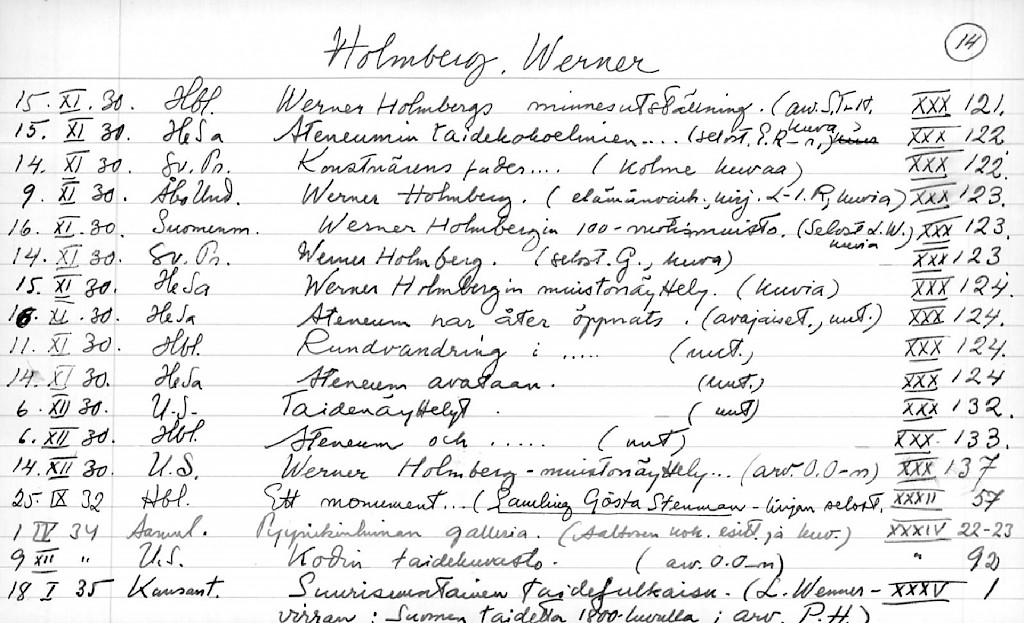 14
Holmberg, Werner
15. XI. 30. Hbl. Werner Holmbergs minnesutställning. (arv. S.T-lt. XXX 121.
15. XI 30. HeSa Ateneumin taidekokoelmien.... (selost. E.R-n,) kuva XXX 122
14. XI 30. Sv. Pr. Konstnärens fader.... (kolme kuvaa) XXX 122.
9. XI 30. Åbo Und. Werner Holmberg. (elämänvaih., kirj. L-I.R, kuvia) XXX 123.
16. XI. 30. Suomenm. Werner Holmbergin 100-vuotismuisto. (Selost. L.W.) kuvia XXX 123.
14. XI 30. Sv. Pr. Werner Holmberg. (selost. G., kuva) XXX 123
15. XI 30. HeSa Werner Holmbergin muistonäyttely. (kuvia) XXX 124.
16. XI. 30. HeSa Ateneum har åter öppnats. (avajaiset., uut.) XXX 124.
11. XI 30. Hbl. Rundvandring i ..... (uut.) XXX 124.
14. XI 30. HeSa Ateneum avataan. (uut.) XXX 124
6. XII 30. U.S. Taidenäyttelyt. (uut) XXX 132.
6. XII 30. Hbl. Ateneum och ..... (uut) XXX. 133.
14. XII 30. U.S. Werner Holmberg-muistonäyttely... (arv. O.O-n) XXX 137
25. IX 32 Hbl. Ett monument... (Samling Gösta Stenman-kirjan selost. XXXII 57
1 IV 34 Aamul. Pyynikinlinnan galleria. (Aaltosen kok. esitt. ja kuv.) XXXIV 22-23
9 XII " U.S. Kodin taidekuvasto. (arv. O.O-n) " 92
18. I 35 Kansant. Suurisuuntainen taidejulkaisu. (L. Wenner- XXXV 1
virran: Suomen taidetta 1800-luvulla; arv. P.H.)